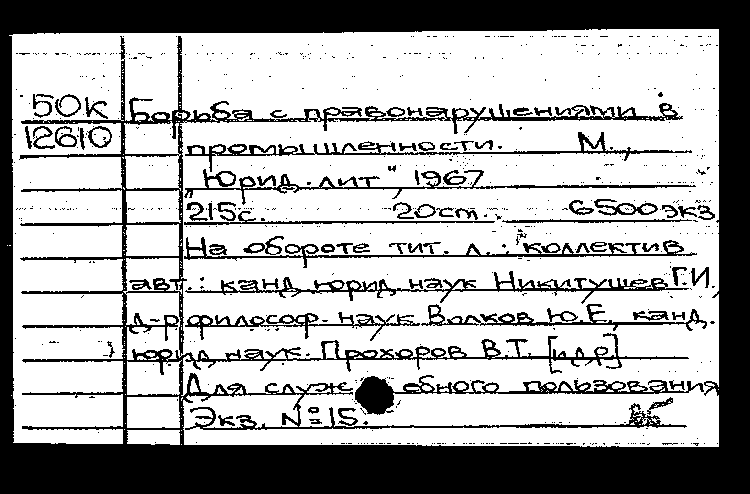 50К Борьба с правонарушениями в
12610 промышленности. М.,
"Юрид. лит", 1967
215с. 20ст. 6500экз
На обороте тит. л.: коллектив
авт.: канд. юрид. наук Никитушев Г.И.,
д-р философ. наук Волков Ю.Е., канд.
юрид. наук. Прохоров В.Т. [и др]
Для служебного пользования
Экз. №15.